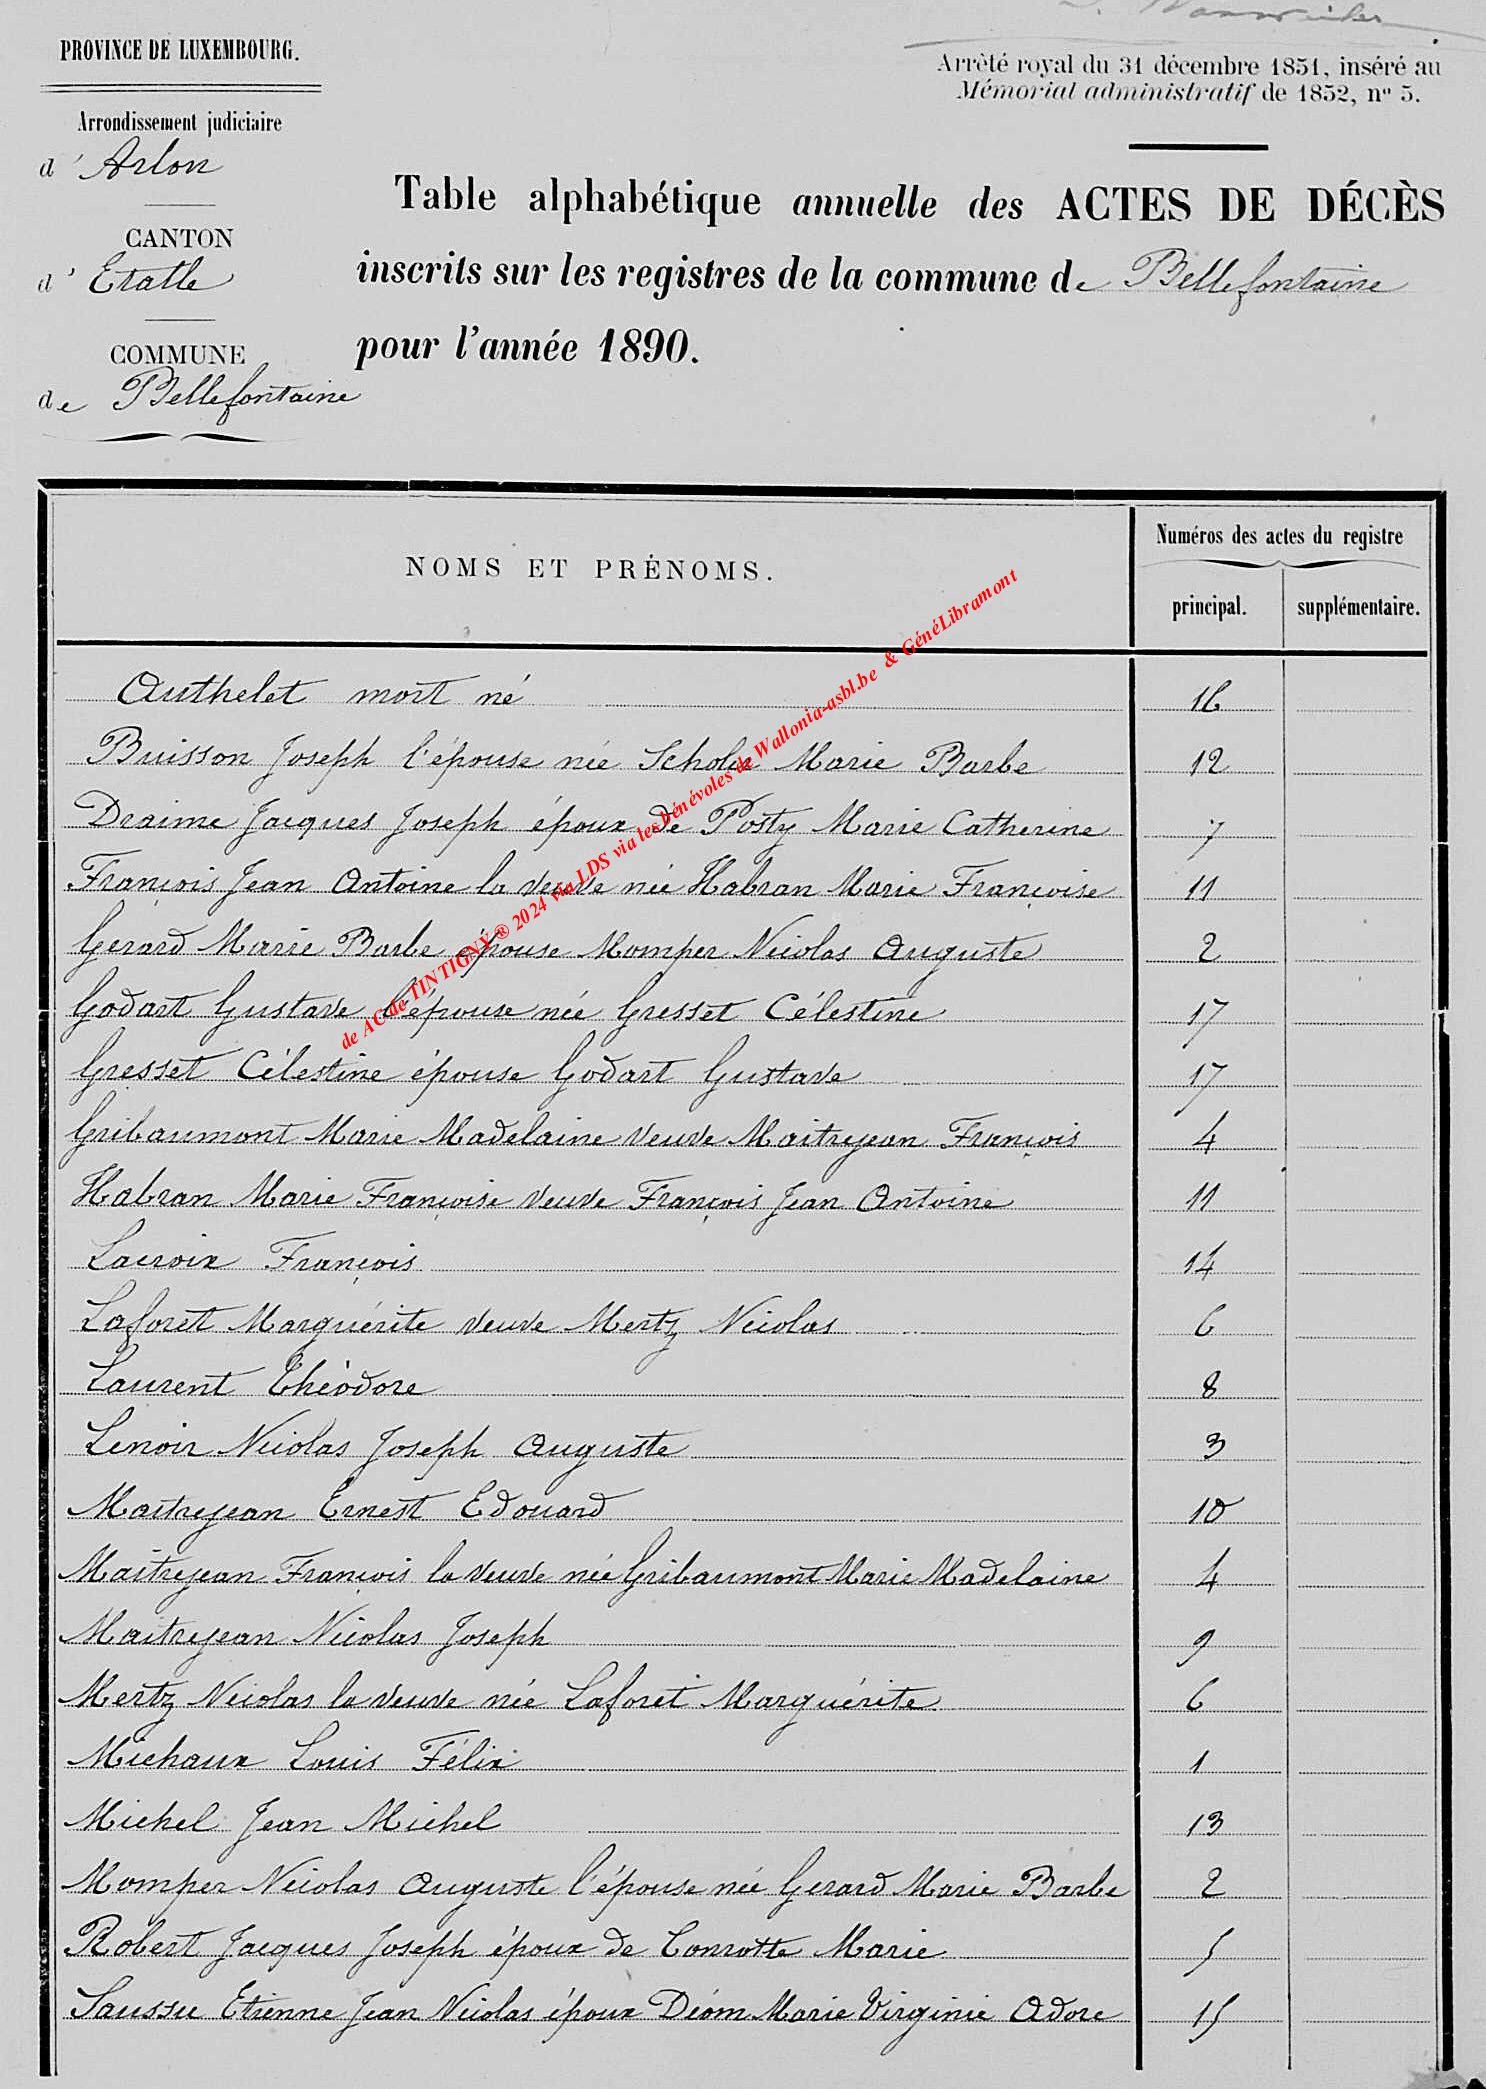 PROVINCE DE LUXEMBOURG.
Arrêté royal du 31 décembre 1851, inséré au
Mémorial administratif de 1852, nº 5.
Arrondissement judiciaire
d' Arlon
CANTON
d' Etalle
COMMUNE
de Bellefontaine
Table alphabétique annuelle des ACTES DE DÉCÈS
inscrits sur les registres de la commune de Bellefontaine
pour l'année 1890.
NOMS ET PRÉNOMS.
Numéros des actes du registre
principal. supplémentaire.
Authelet mort né 16
Buisson Joseph l'épouse née Scholer Marie Barbe 12
Draime Jacques Joseph époux de Posty Marie Catherine 7
François Jean Antoine la veuve née Habran Marie Françoise 11
Gerard Marie Barbe épouse Momper Nicolas Auguste 2
Godart Gustave l'épouse née Gresset Célestine 17
Gresset Célestine épouse Godart Gustave 17
Gribaumont Marie Madelaine veuve Maitrejean François 4
Habran Marie Françoise veuve François Jean Antoine 11
Lacroix François 14
Laforet Marguérite veuve Mertz Nicolas 6
Laurent Théodore 8
Lenoir Nicolas Joseph Auguste 3
Maitrejean Ernest Edouard 10
Maitrejean François la veuve née Gribaumont Marie Madelaine 4
Maitrejean Nicolas Joseph 9
Mertz Nicolas la veuve née Laforet Marguérite 6
Michaux Louis Félix 1
Michel Jean Michel 13
Momper Nicolas Auguste l'épouse née Gerard Marie Barbe 2
Robert Jacques Joseph époux de Conrotte Marie 5
Saussu Etienne Jean Nicolas époux Déom Marie Virginie Adore 15
de AC de TINTIGNY ® 2024 via LDS via les bénévoles de Wallonia-asbl.be & GénéLibramont